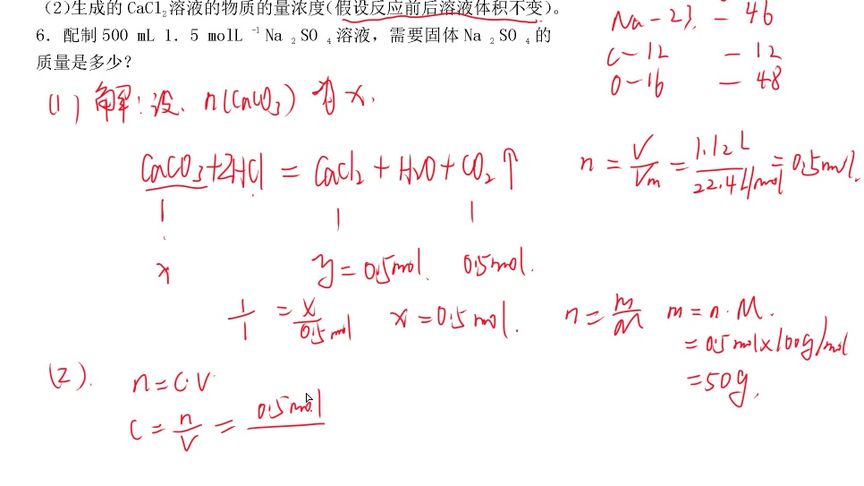 (2)生成的 CaCl₂溶液的物质的量浓度(假设反应前后溶液体积不变)。
6. 配制 500 mL 1. 5 molL ⁻¹ Na ₂ SO ₄ 溶液, 需要固体 Na ₂ SO ₄ 的
质量是多少?
Na - 23. - 46
C - 12 - 12
O - 16 - 48
(1) 解: 设. n(CaCO₃) 为 x.
CaCO₃+2HCl = CaCl₂ + H₂O + CO₂↑
1 1 1
x y = 0.5mol. 0.5mol.
1/1 = x/0.5mol x = 0.5mol.
n = V/Vm = 1.12L/22.4L/mol = 0.5mol.
n = m/M m = n·M.
= 0.5mol×100g/mol
= 50g.
(2). n = C·V
C = n/V = 0.5mol